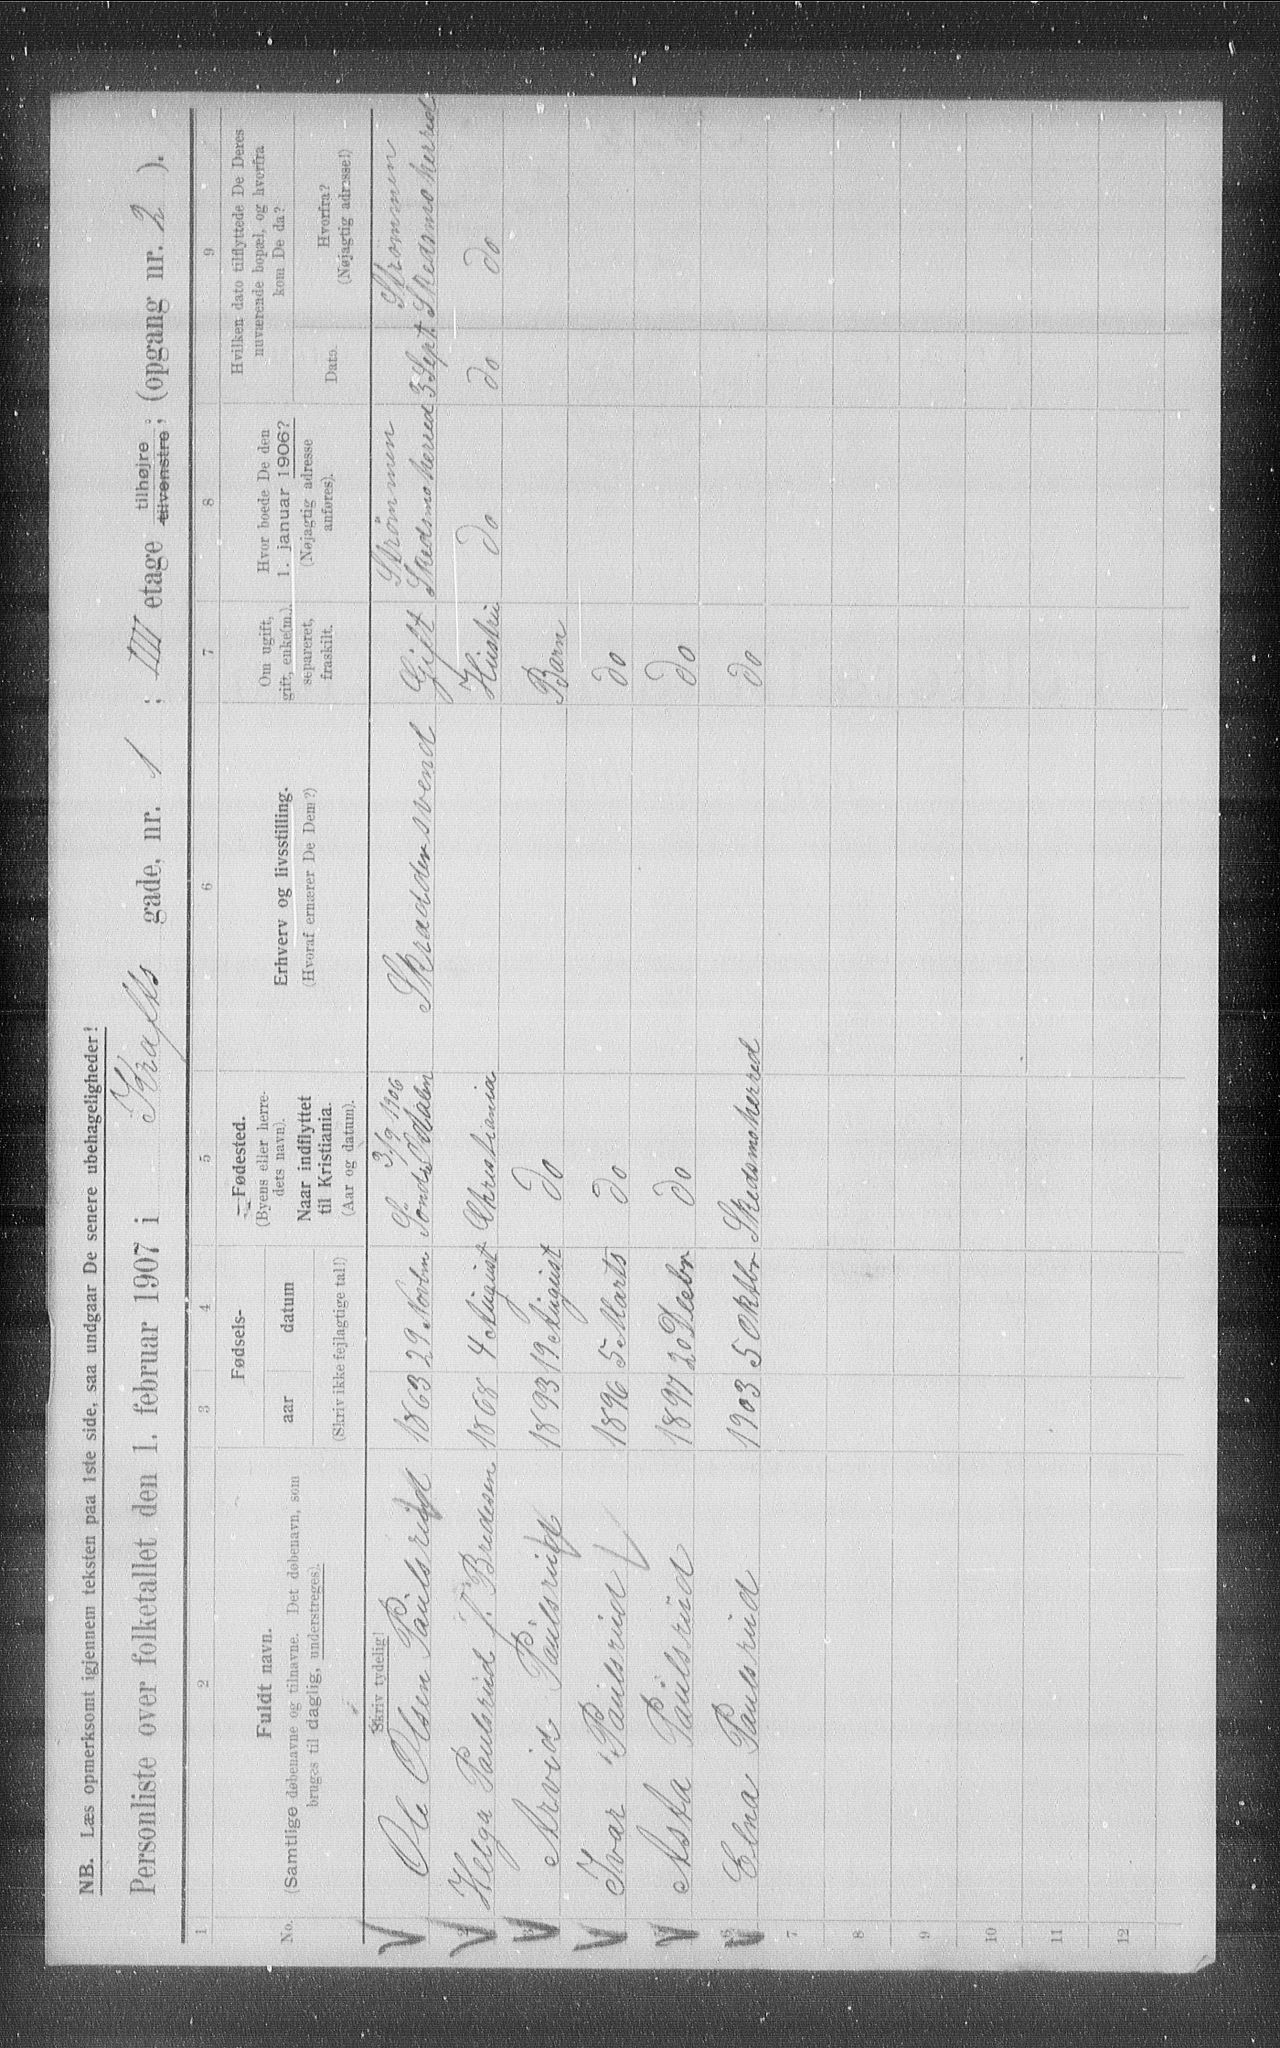 NB. Læs opmerksomt igjennem teksten paa 1ste side, saa undgaar De senere ubehageligheder!
Personliste over folketallet den 1. februar 1907 i Krafts gade, nr. 1 ; IIII etage tilhøjre ; (opgang nr. 2 ).
tilvenstre ;
1 2 3 4 5 6 7 8 9
No.
Fuldt navn.
(Samtlige døbenavne og tilnavne. Det døbenavn, som
bruges til daglig, understreges).
Fødsels-
aar datum
(Skriv ikke fejlagtige tal!)
Fødested.
(Byens eller herre-
dets navn).
Naar indflyttet
til Kristiania.
(Aar og datum).
Erhverv og livsstilling.
(Hvoraf ernærer De Dem?)
Om ugift,
gift, enke(m.),
separeret,
fraskilt.
Hvor boede De den
1. januar 1906?
(Nøjagtig adresse
anføres).
Hvilken dato tilflyttede De Deres
nuværende bopæl, og hvorfra
kom De da?
Dato.
Hvorfra?
(Nøjagtig adresse!)
Skriv tydelig!
3/9 1906 Strømmen Strømmen
Ole Olsen Paulsrud 1863 29 Novbr Søndre Odalen Skræddersvend Gift Skedsmo herred 3 Sept Skedsmo herred
2 Helga Paulsrud f. Bredesen 1868 4 August Christiania Hustru do do do
3 Arvid Paulsrud 1893 19 August do Barn
Ivar Paulsrud 1896 5 Marts do do
Asta Paulsrud 1897 20 Decbr do do
6 Elna Paulsrud 1903 5 Oktbr Skedsmo herred do
7
8
9
10
11
12